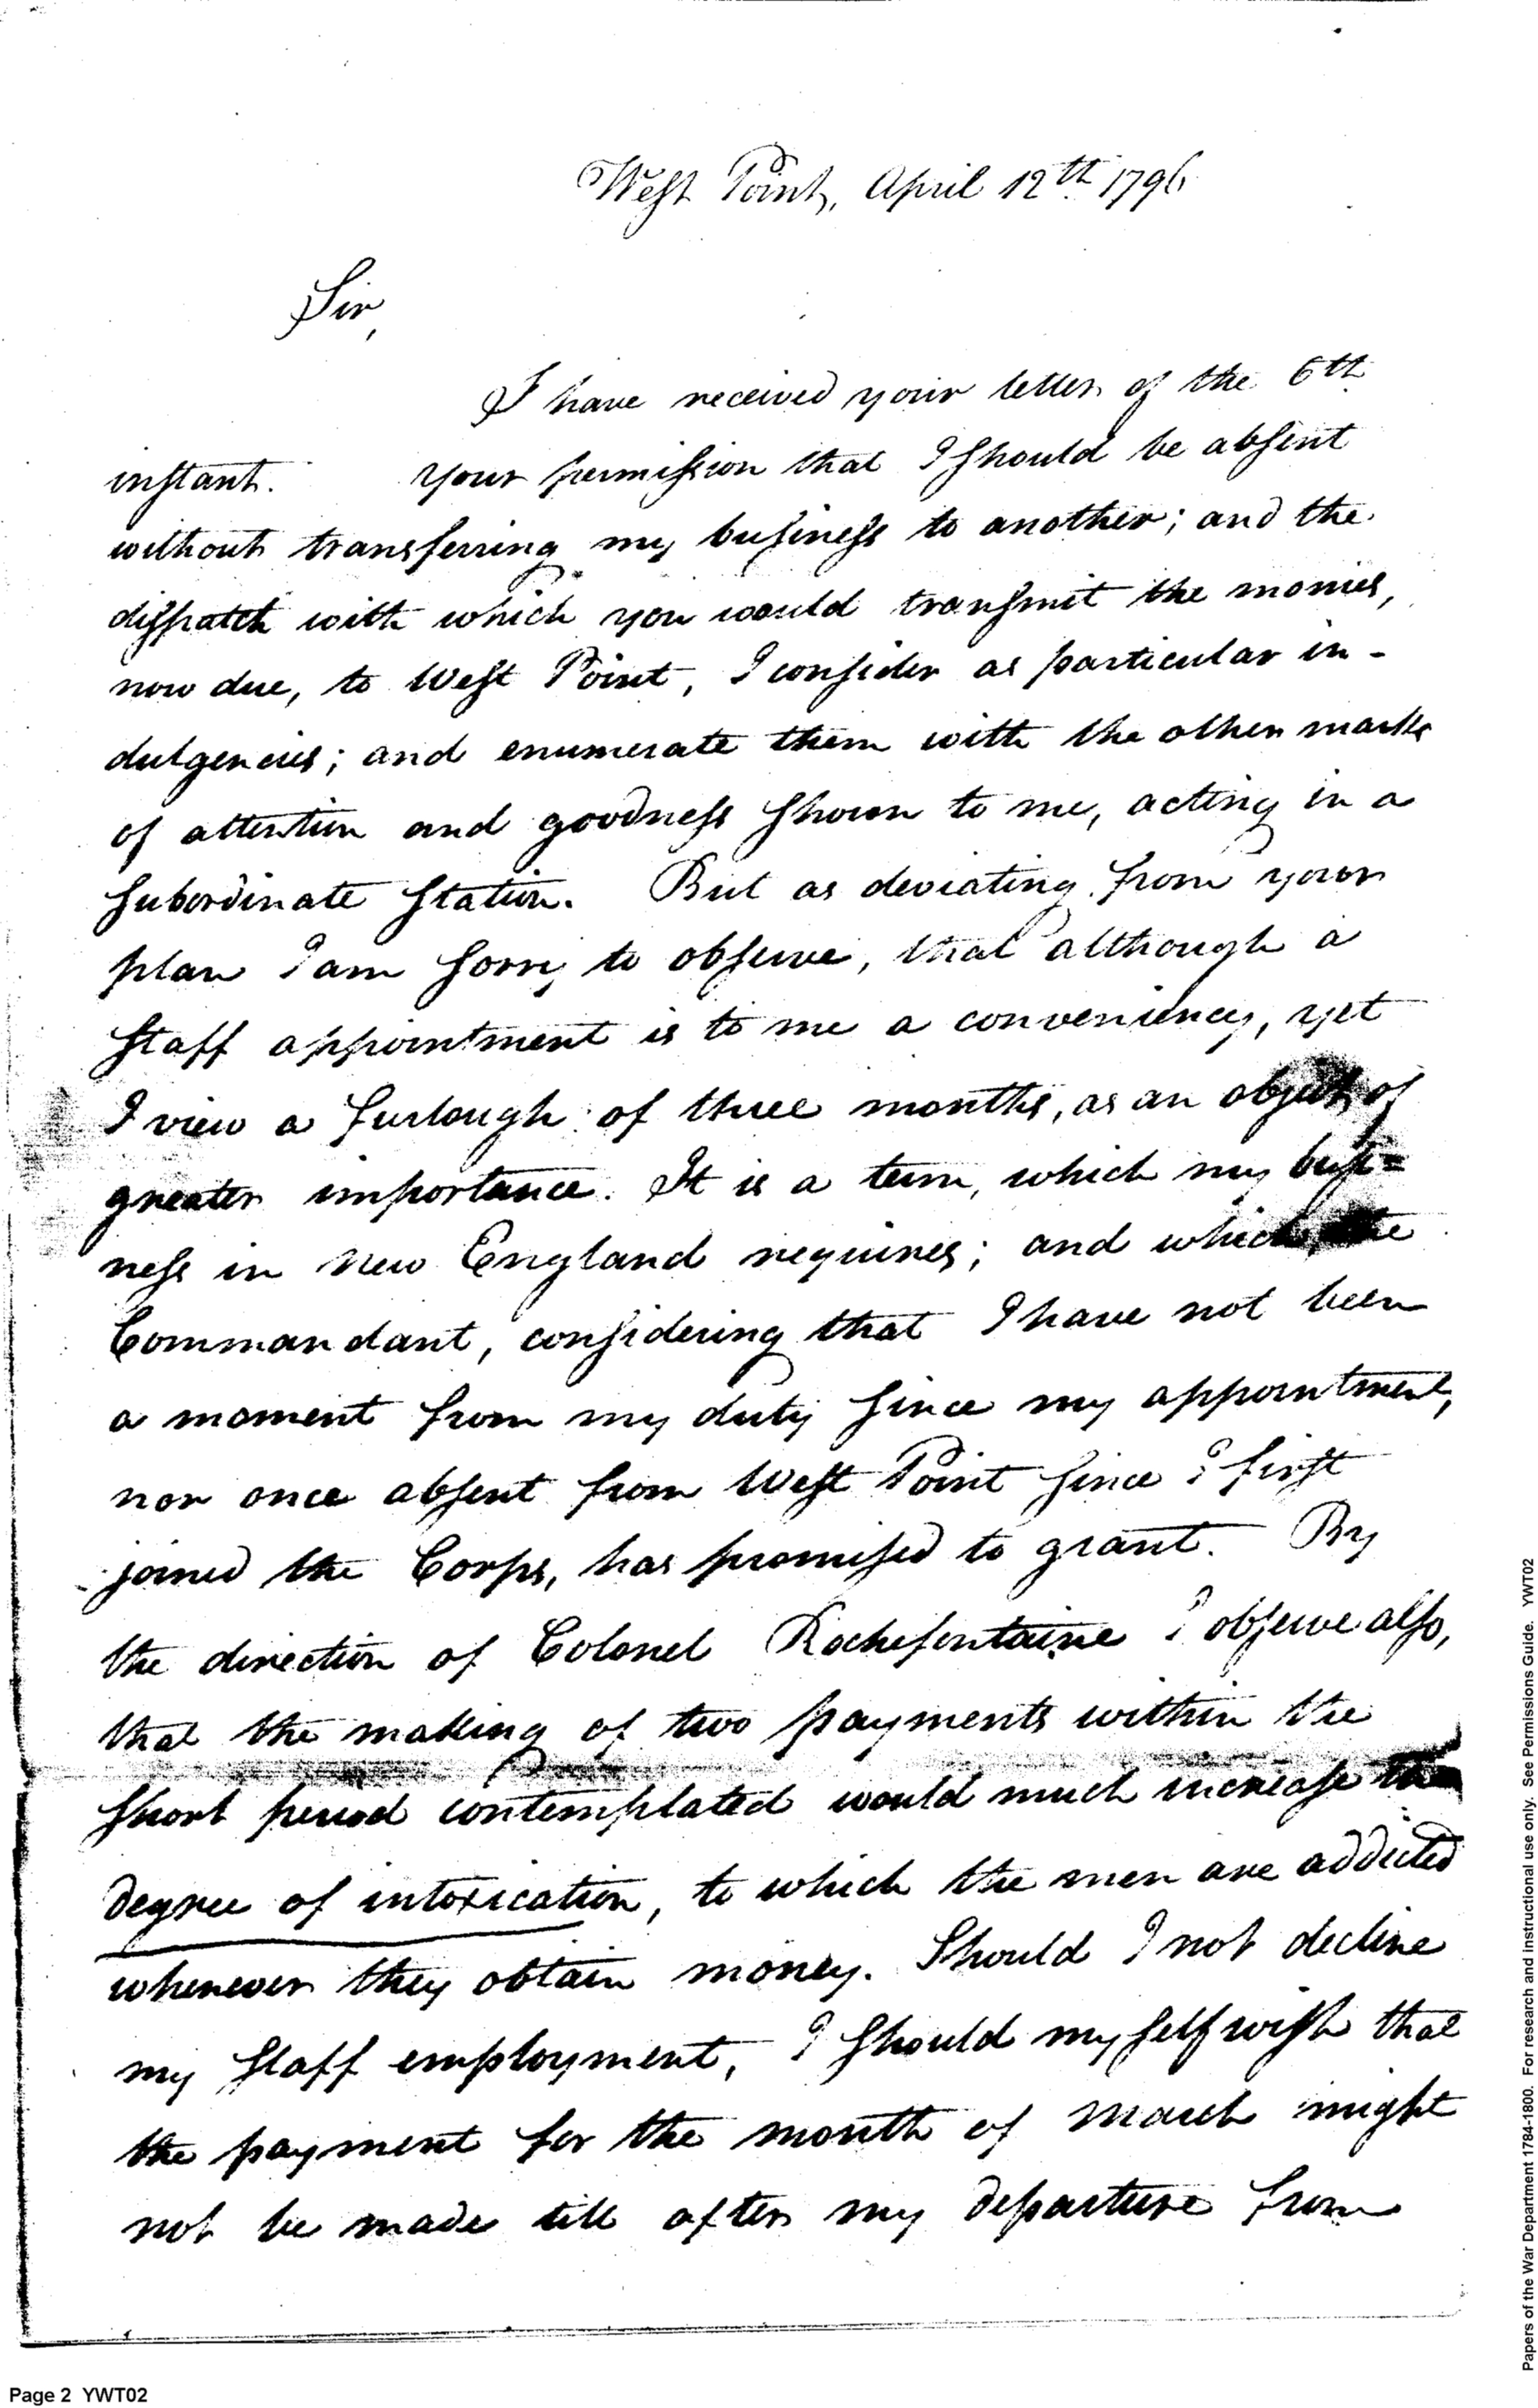 West Point, April 12th 1796
Sir,
I have received your letter of the 6th
instant. Your permission that I should be absent
without transferring my business to another; and the
dispatch with which you would transmit the monies,
now due, to West Point, I consider as particular in-
dulgencies; and enumerate them with the other marks
of attention and goodness shown to me, acting in a
subordinate station. But as deviating from your
plan I am sorry to observe, that although a
staff appointment is to me a conveniency, yet
I view a furlough of three months, as an object of
greater importance. It is a term, which my busi=
ness in New England requires; and which the
Commandant, considering that I have not been
a moment from my duty since my appointment,
nor once absent from West Point since I first
joined the Corps, has promised to grant. By
the direction of Colonel Rochefontaine I observe also,
that the making of two payments within the
short period contemplated would much increase the
degree of intoxication, to which the men are addicted
whenever they obtain money. Should I not decline
my staff employment, I should myself wish that
the payment for the month of March might
not be made till after my departure from
Page 2 YWT02
Papers of the War Department 1784-1800. For research and instructional use only. See Permissions Guide. YWT02